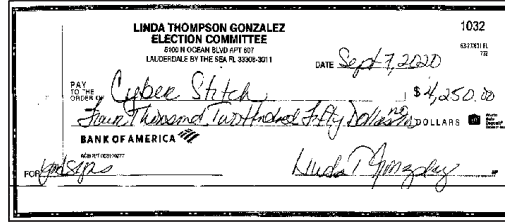 LINDA THOMPSON GONZALEZ 1032
ELECTION COMMITTEE
5100 N OCEAN BLVD APT 607
LAUDERDALE BY THE SEA FL 33308-3011
DATE Sept 7, 2020
PAY
TO THE
ORDER OF Cyber Stitch $4,250.00
Four Thousand, Two Hundred Fifty Dollars DOLLARS
BANK OF AMERICA
FOR Yard Signs Linda T Gonzalez